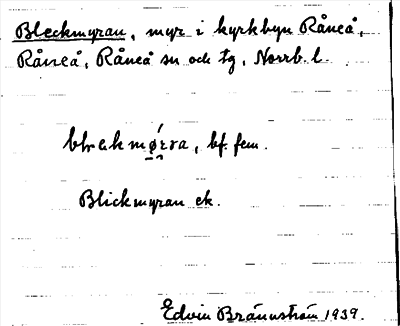 Bleckmyran, myr i kyrkbyn Råneå,
Råneå, Råneå sn och tg, Norrb. l.
bf. fem.
Blickmyran ek.
Edvin Brännström 1939.